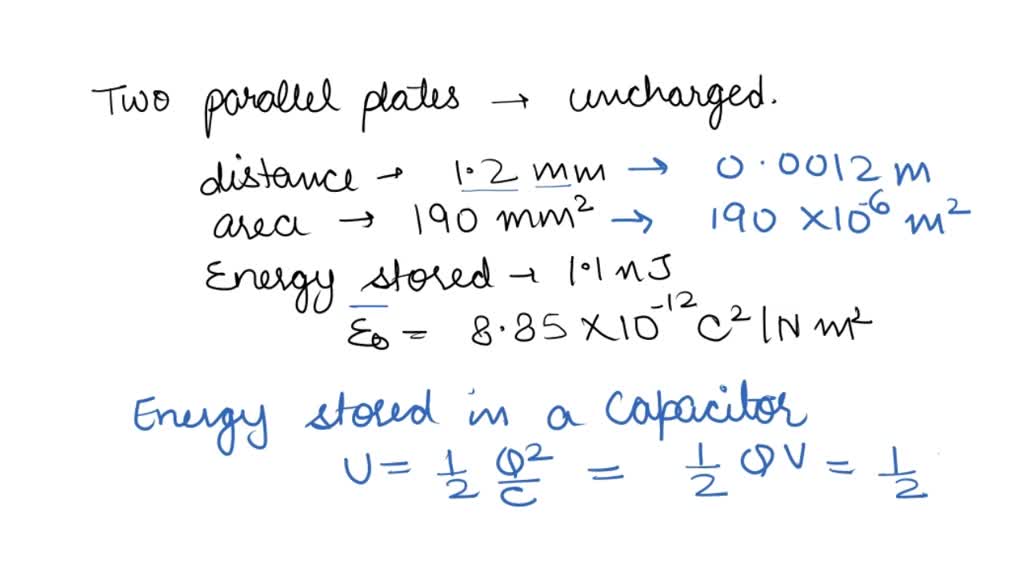 Two parallel plates → uncharged.
distance → 1.2 mm → 0.0012 m
area → 190 mm² → 190 ×10⁻⁶ m²
Energy stored → 1.1 nJ
ε₀ = 8.85 ×10⁻¹² C²/N m²
Energy stored in a capacitor
U = 1/2 Q²/C = 1/2 QV = 1/2